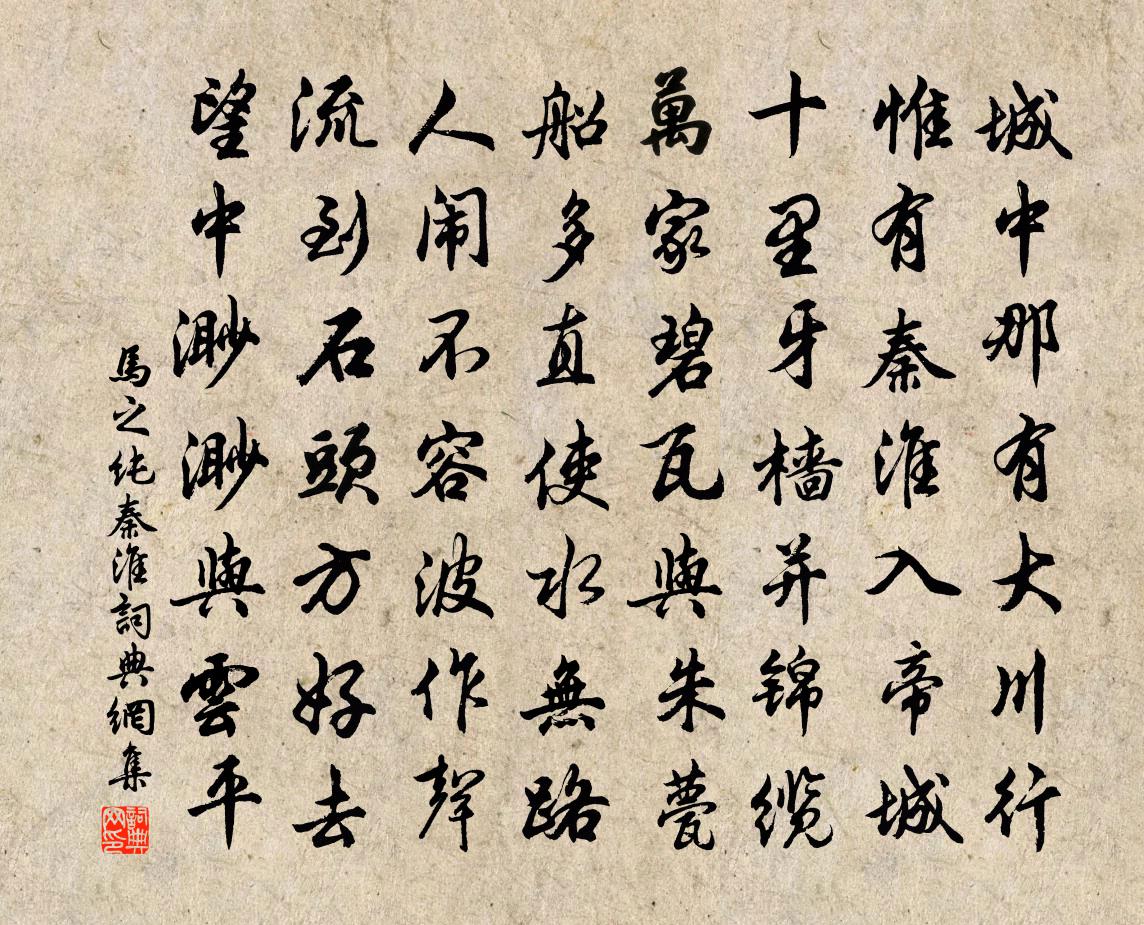 城中那有大川行
惟有秦淮入帝城
十里牙樯并锦缆
萬家碧瓦與朱甍
船多直使水無路
人闹不容波作聲
流到石頭方好去
望中渺渺與雲平
馬之纯秦淮詞典網集
詞典网印